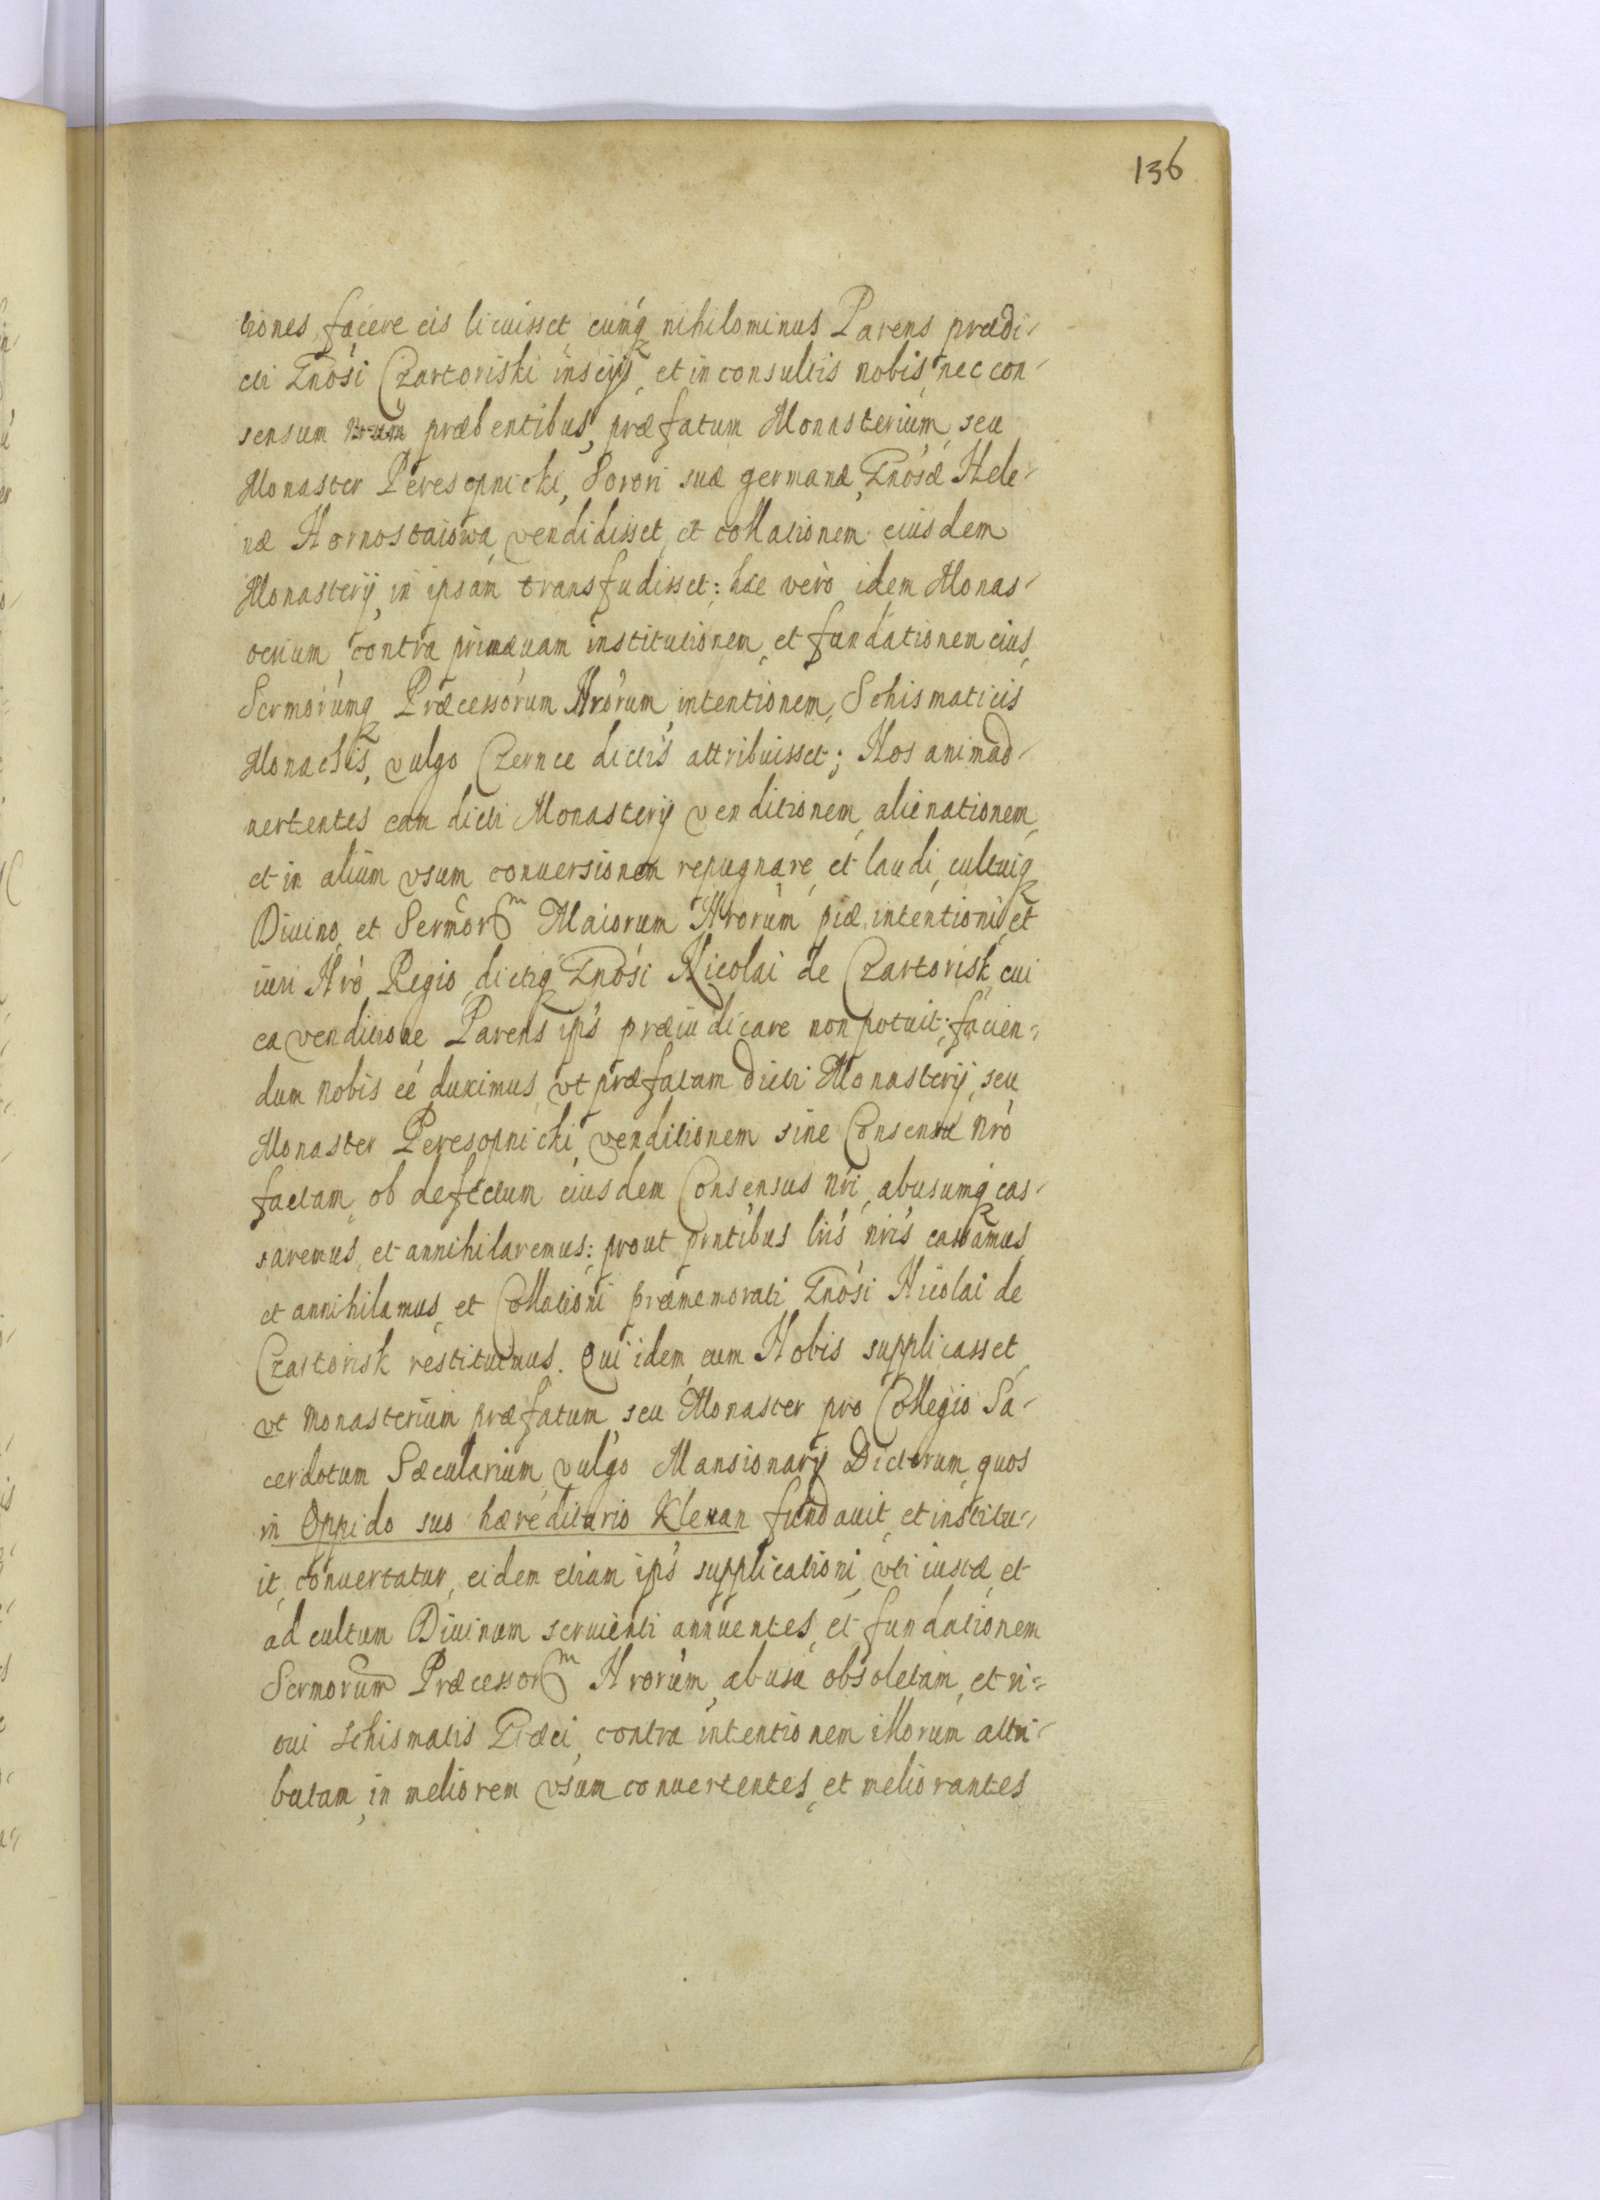 136
tiones facere eis licuisset, cumq nihilominus Parens prædi-
cti Gnosi Czartoriski inscijs, et inconsultis nobis, nec con-
sensum præbentibus, præfatum Monasterium, seu
Monaster Peresopnicki, Sorori suæ germanæ, Gnosæ Hele-
næ Hornostaiowa, vendidisset, et collationem eiusdem
Monasterij in ipsam transfudisset: hæc verò idem Monas-
terium contra primævam institutionem, et fundationem eius,
Sermorumq Præcessorum Nrorum intentionem, Schismaticis
Monachis, vulgo Czernce dictis attribuisset; Nos animad-
uertentes eam dicti Monasterij venditionem, alienationem,
et in alium vsum conuersionem repugnare, et laudi, cultuiq
Diuino, et Sermor^m Maiorum Nrorum piæ intentioni, et
iuri Nrò Regio, dictiq Gnosi Nicolai de Czartorisk, cui
ea venditione Parens ips præiudicare non potuit; facien-
dum nobis eé duximus, vt præfatam dicti Monasterij, seu
Monaster Peresopnicki, venditionem sine Consensu Nrò
factam, ob defectum eiusdem Consensus Nri, abusumq cas-
saremus, et annihilaremus: prout pntibus lris nris cassamus,
et annihilamus, et Collationi præmemorati Gnosi Nicolai de
Czartorisk restituimus. Qui idem, cum Nobis supplicasset,
vt Monasterium præfatum, seu Monaster pro Collegio Sa-
cerdotum Sæcularium, vulgo Mansionarij Dictorum, quos
in Oppido suo hæreditario Klewan fundauit, et institu-
it, conuertatur, eidem etiam ips supplicationi, vti iustæ, et
ad cultum Diuinum seruienti annuentes, et fundationem
Sermorum Præcessor^m Nrorum, abusu obsoletam, et ri-
tui Schismatis Græci, contra intentionem illorum attri-
butam, in meliorem vsum conuertentes, et meliorantes